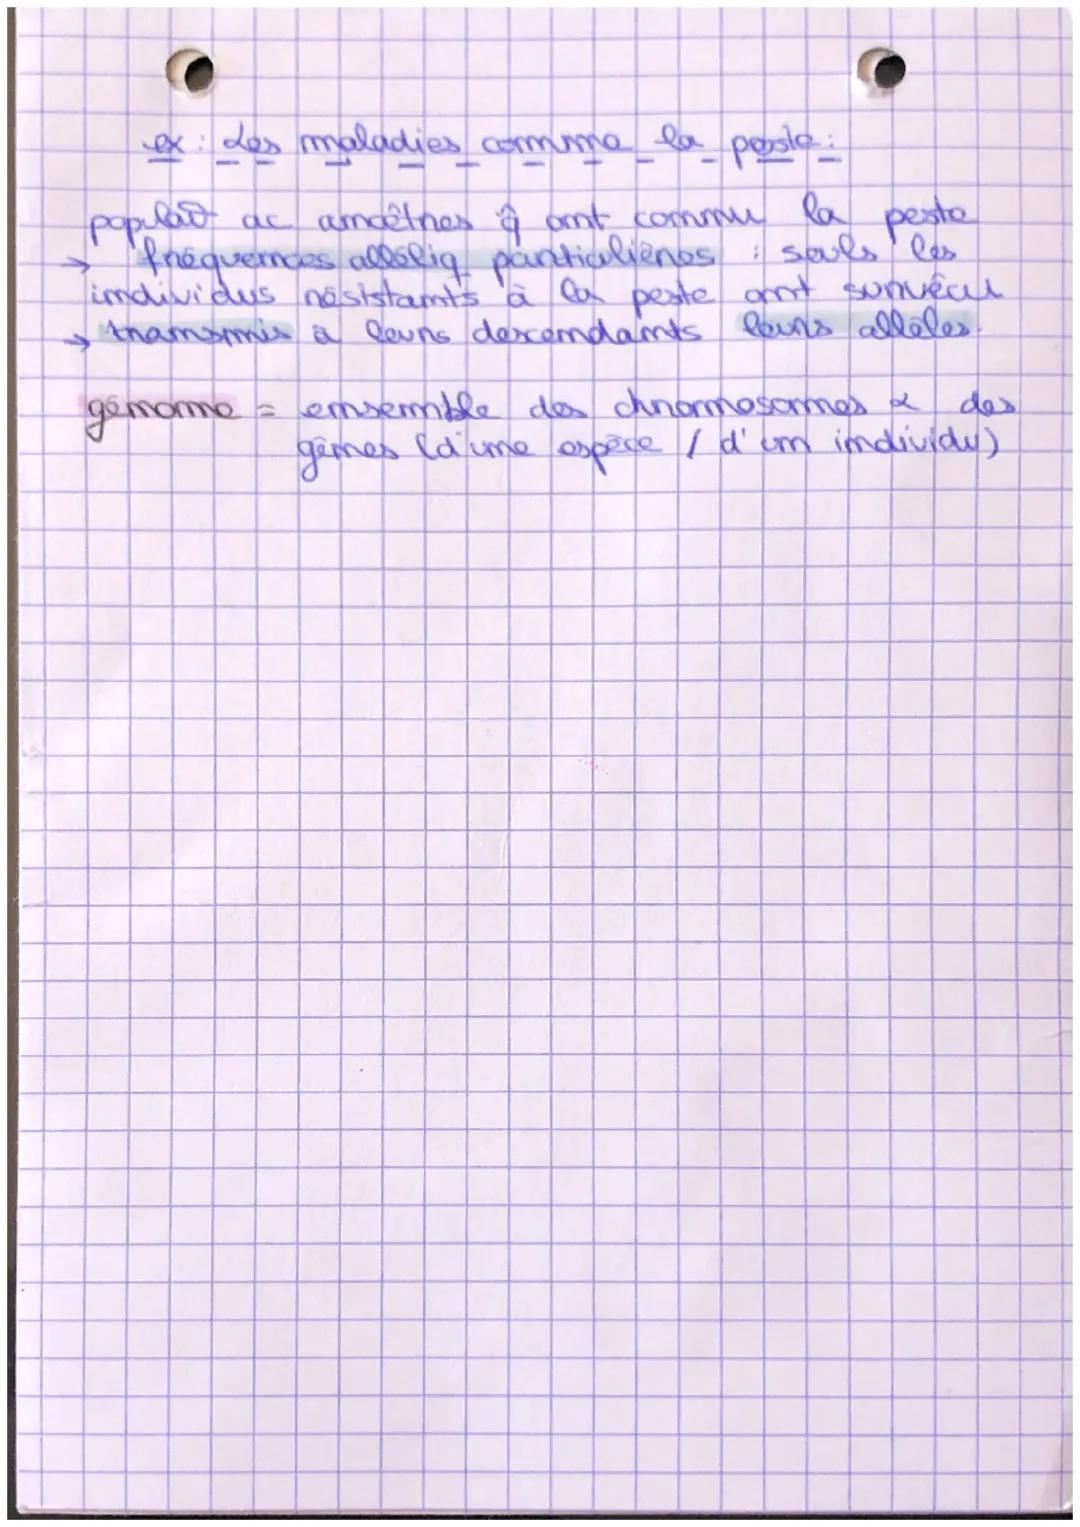 ex : des maladies comme la peste :
populat° ac ancêtres q̂ ont connu la peste
→ fréquences alléliq particulières : seuls les
individus résistants à la peste ont survécu
→ transmis à leurs descendants leurs allèles.
génome = ensemble des chromosomes & des
gènes (d'une espèce / d'un individu)